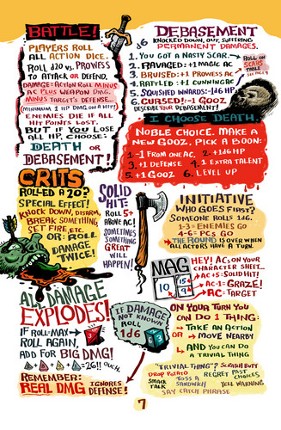 BATTLE!
PLAYERS ROLL
ALL ACTION DICE.
ROLL d20 VS. PROWESS
TO ATTACK OR DEFEND.
DAMAGE: ACTION ROLL MINUS
AC PLUS WEAPON DMG,
MINUS TARGET'S DEFENSE.
(MINIMUM 1 DMG ON A HIT)
ENEMIES DIE IF ALL
HIT POINTS LOST.
BUT IF YOU LOSE
ALL HP, CHOOSE:
DEATH OR
DEBASEMENT!
DEBASEMENT
1d6 KNOCKED DOWN, OUT, SUFFERING
PERMANENT DAMAGES.
1. YOU GOT A NASTY SCAR...
2. MANGLED: -1 MAGIC AC
3. BRUISED: +1 PROWESS AC
4. RATTLED: +1 CUNNING AC
5. SQUISHED AWARDS: -1d6 HP
6. CURSED!: -1 GOOZ
ROLL ON
SCARS
TABLE
I CHOOSE DEATH.
NOBLE CHOICE. MAKE A
NEW GOOZ, PICK A BOON:
1. -1 FROM ONE AC,
2. +1d6 HP
3. +1 DEFENSE
4. 1 EXTRA TALENT
5. +1 GOOZ
6. LEVEL UP
CRITS
ROLLED A 20?
SPECIAL EFFECT!
KNOCK DOWN, DISARM,
BREAK SOMETHING,
SET FIRE, ETC.
OR: ROLL
DAMAGE
TWICE!
SOLID
HIT:
ROLL 5+
ABOVE AC!
SOMETIMES
SOMETHING
GREAT
WILL
HAPPEN!
INITIATIVE
WHO GOES FIRST?
SOMEONE ROLLS 1d6.
1-3 = ENEMIES GO
4-6 = PCS GO
THE ROUND IS OVER WHEN
ALL ACTORS HAVE A TURN.
MAG
10
15
9
HEY! AC, ON YOUR
CHARACTER SHEET.
AC+5 = SOLID HIT!
AC-1 = GRAZE!
AC = TARGET
ALL DAMAGE
EXPLODES!
IF ROLL=MAX
ROLL AGAIN,
ADD FOR BIG DMG!
=26!! OUCH.
REMEMBER:
REAL DMG IGNORES
DEFENSE!
IF DAMAGE
NOT KNOWN
ROLL
1d6
ON YOUR TURN YOU
CAN DO 1 THING:
TAKE AN ACTION
OR MOVE NEARBY
AND YOU CAN DO
A TRIVIAL THING
"TRIVIAL THING"?
DROP POTATO
SMACK
TALK
TOSS A
SANDWICH
YELL WARNING
SAY CATCH PHRASE
7